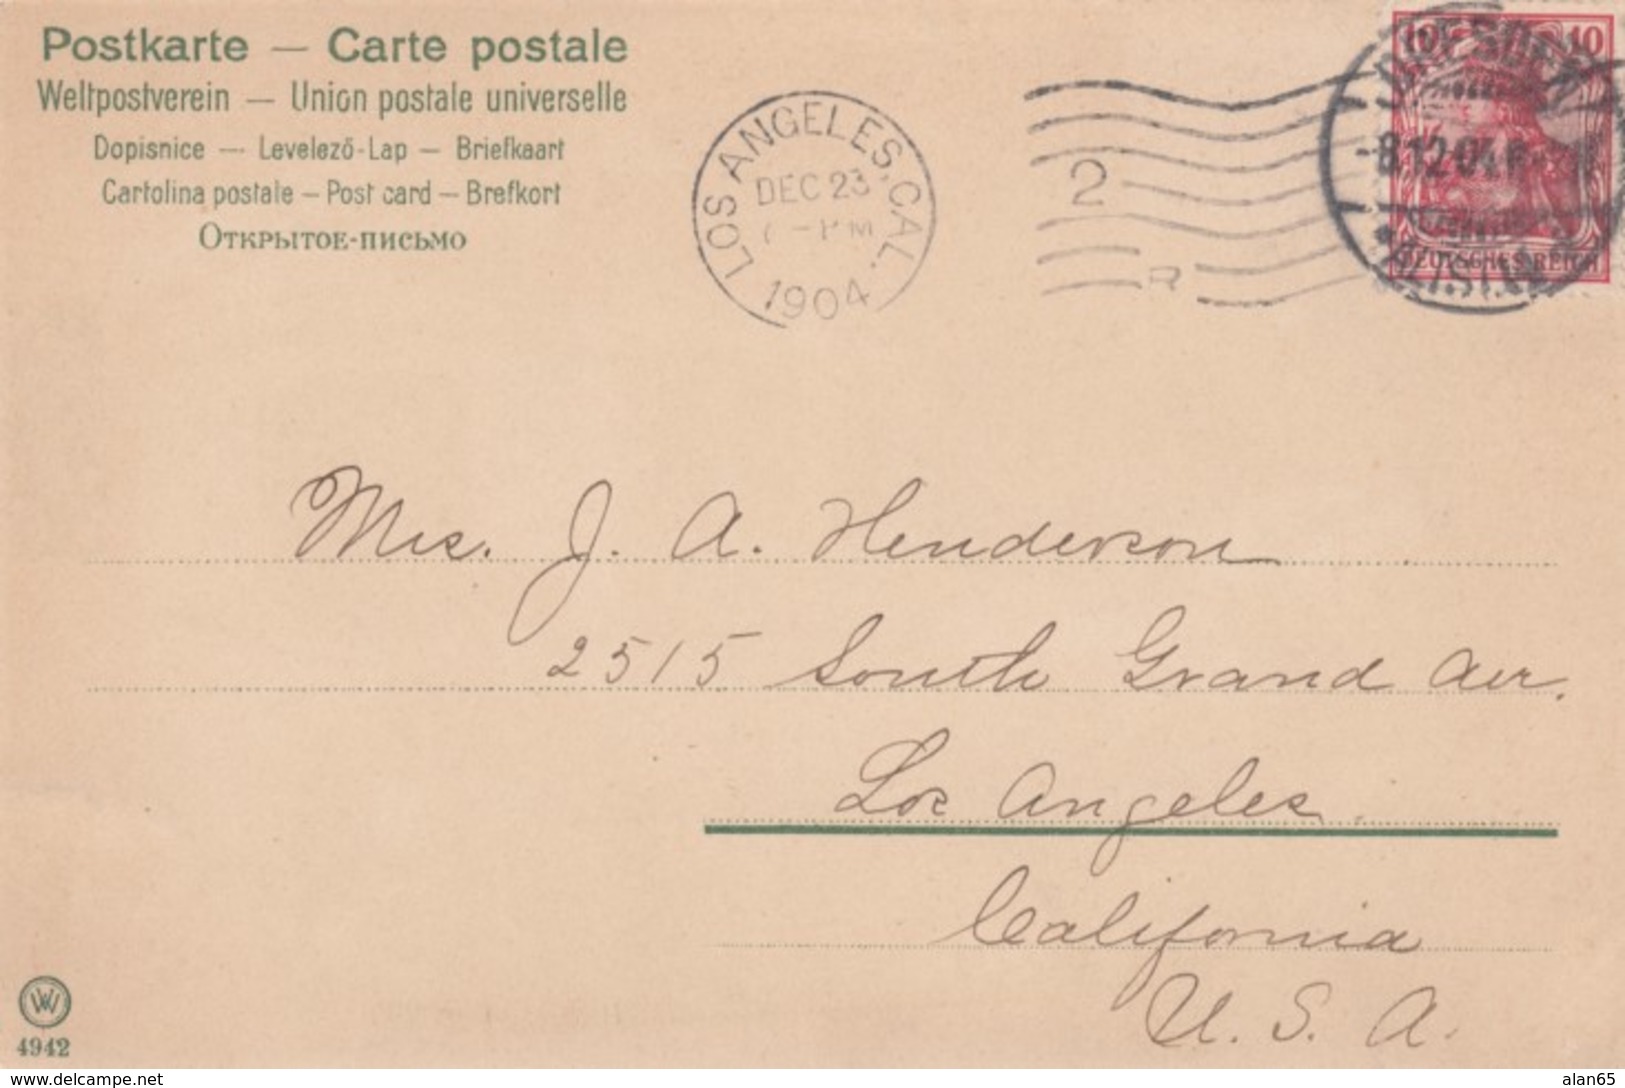 Postkarte — Carte postale
Weltpostverein — Union postale universelle
Dopisnice — Levelező-Lap — Briefkaart
Cartolina postale — Post card — Brefkort
Открытое-письмо
LOS ANGELES, CAL.
DEC 23
PM
1904
2
10 10
DRESDEN
-8.12.04
DEUTSCHES REICH
Mrs. J. A. Henderson
2515 South Grand Ave.
Los Angeles.
California
U. S. A.
W
4942
www.delcampe.net
alan65